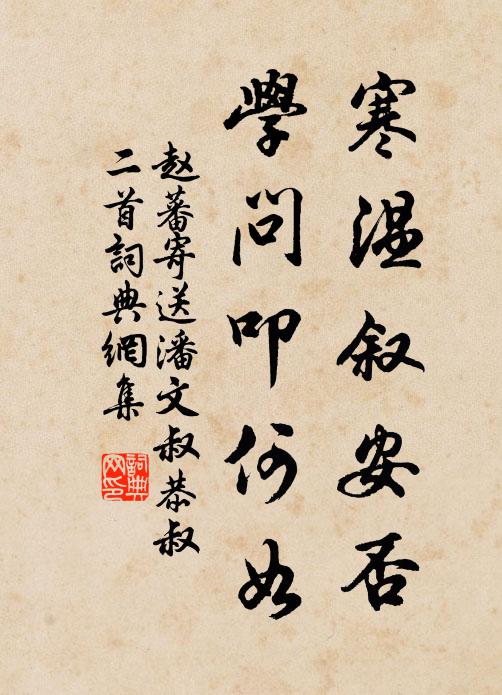 寒温叙安否
學問叩何如
赵蕃寄送潘文叔恭叔
二首詞典網集
詞典網印